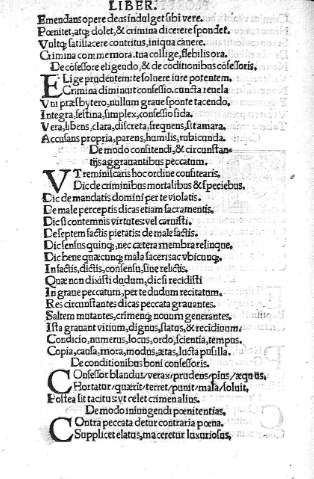 LIBER.
Emendans opere deus indulget sibi vere.
Pœnitet, atq; dolet, & crimina dicere spondet.
Vultq; satisfacere contritus, iniqua canere.
Crimina commemora. tua collige, flebilis ora.
De cõfessore eligendo, & de cõditionibus cõfessoris.
ELige prudentem: te soluere iure potentem.
Crimina diminuit confessio. cuncta reuela
Vni præsbytero, nullum graue sponte tacendo,
Integra, festina, simplex, confessio fida.
Vera, libens, clara, discreta, frequens, sit amara.
Accusans propria, parens, humilis, rubicunda.
De modo confitendi, & circunstan-
tijs aggrauantibus peccatum.
VT reminiscaris hoc ordine confitearis.
Dic de criminibus mortalibus & speciebus.
Dic de mandatis domini per te violatis.
De male perceptis dicas etiam sacramentis.
Dic si contemnis virtutes: vel carnisti.
De septem factis pietatis: de male factis.
Dic sensus quinq; nec cætera membra relinque.
Dic bene quæcunq; mala faceris ac vbicunq;
In factis, dictis, consensu, sine relictis.
Quæ non dixisti dudum, dic si recidisti
In graue peccatum, per te dudum recitatum.
Res circunstantes dicas peccata grauantes.
Saltem mutantes, crimenq; nouum generantes.
Ista grauant vitium, dignus, status, & recidiuum.
Condicio, numerus, locus, ordo, scientia, tempus.
Copia, causa, mora, modus, ætas, lucta pusilla.
De conditionibus boni confessoris.
COnfessor blandus/verax/prudens/pius/æquus,
Hortatur/quærit/terret/punit/mala/soluit,
Postea sit tacitus: vt celet crimen alius.
De modo iniungendi pœnitentias.
COntra peccata detur contraria pœna.
Supplicet elatus, maceretur luxuriosus,